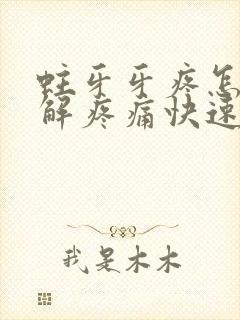 蛀牙牙疼怎
解疼痛快速
我是木木